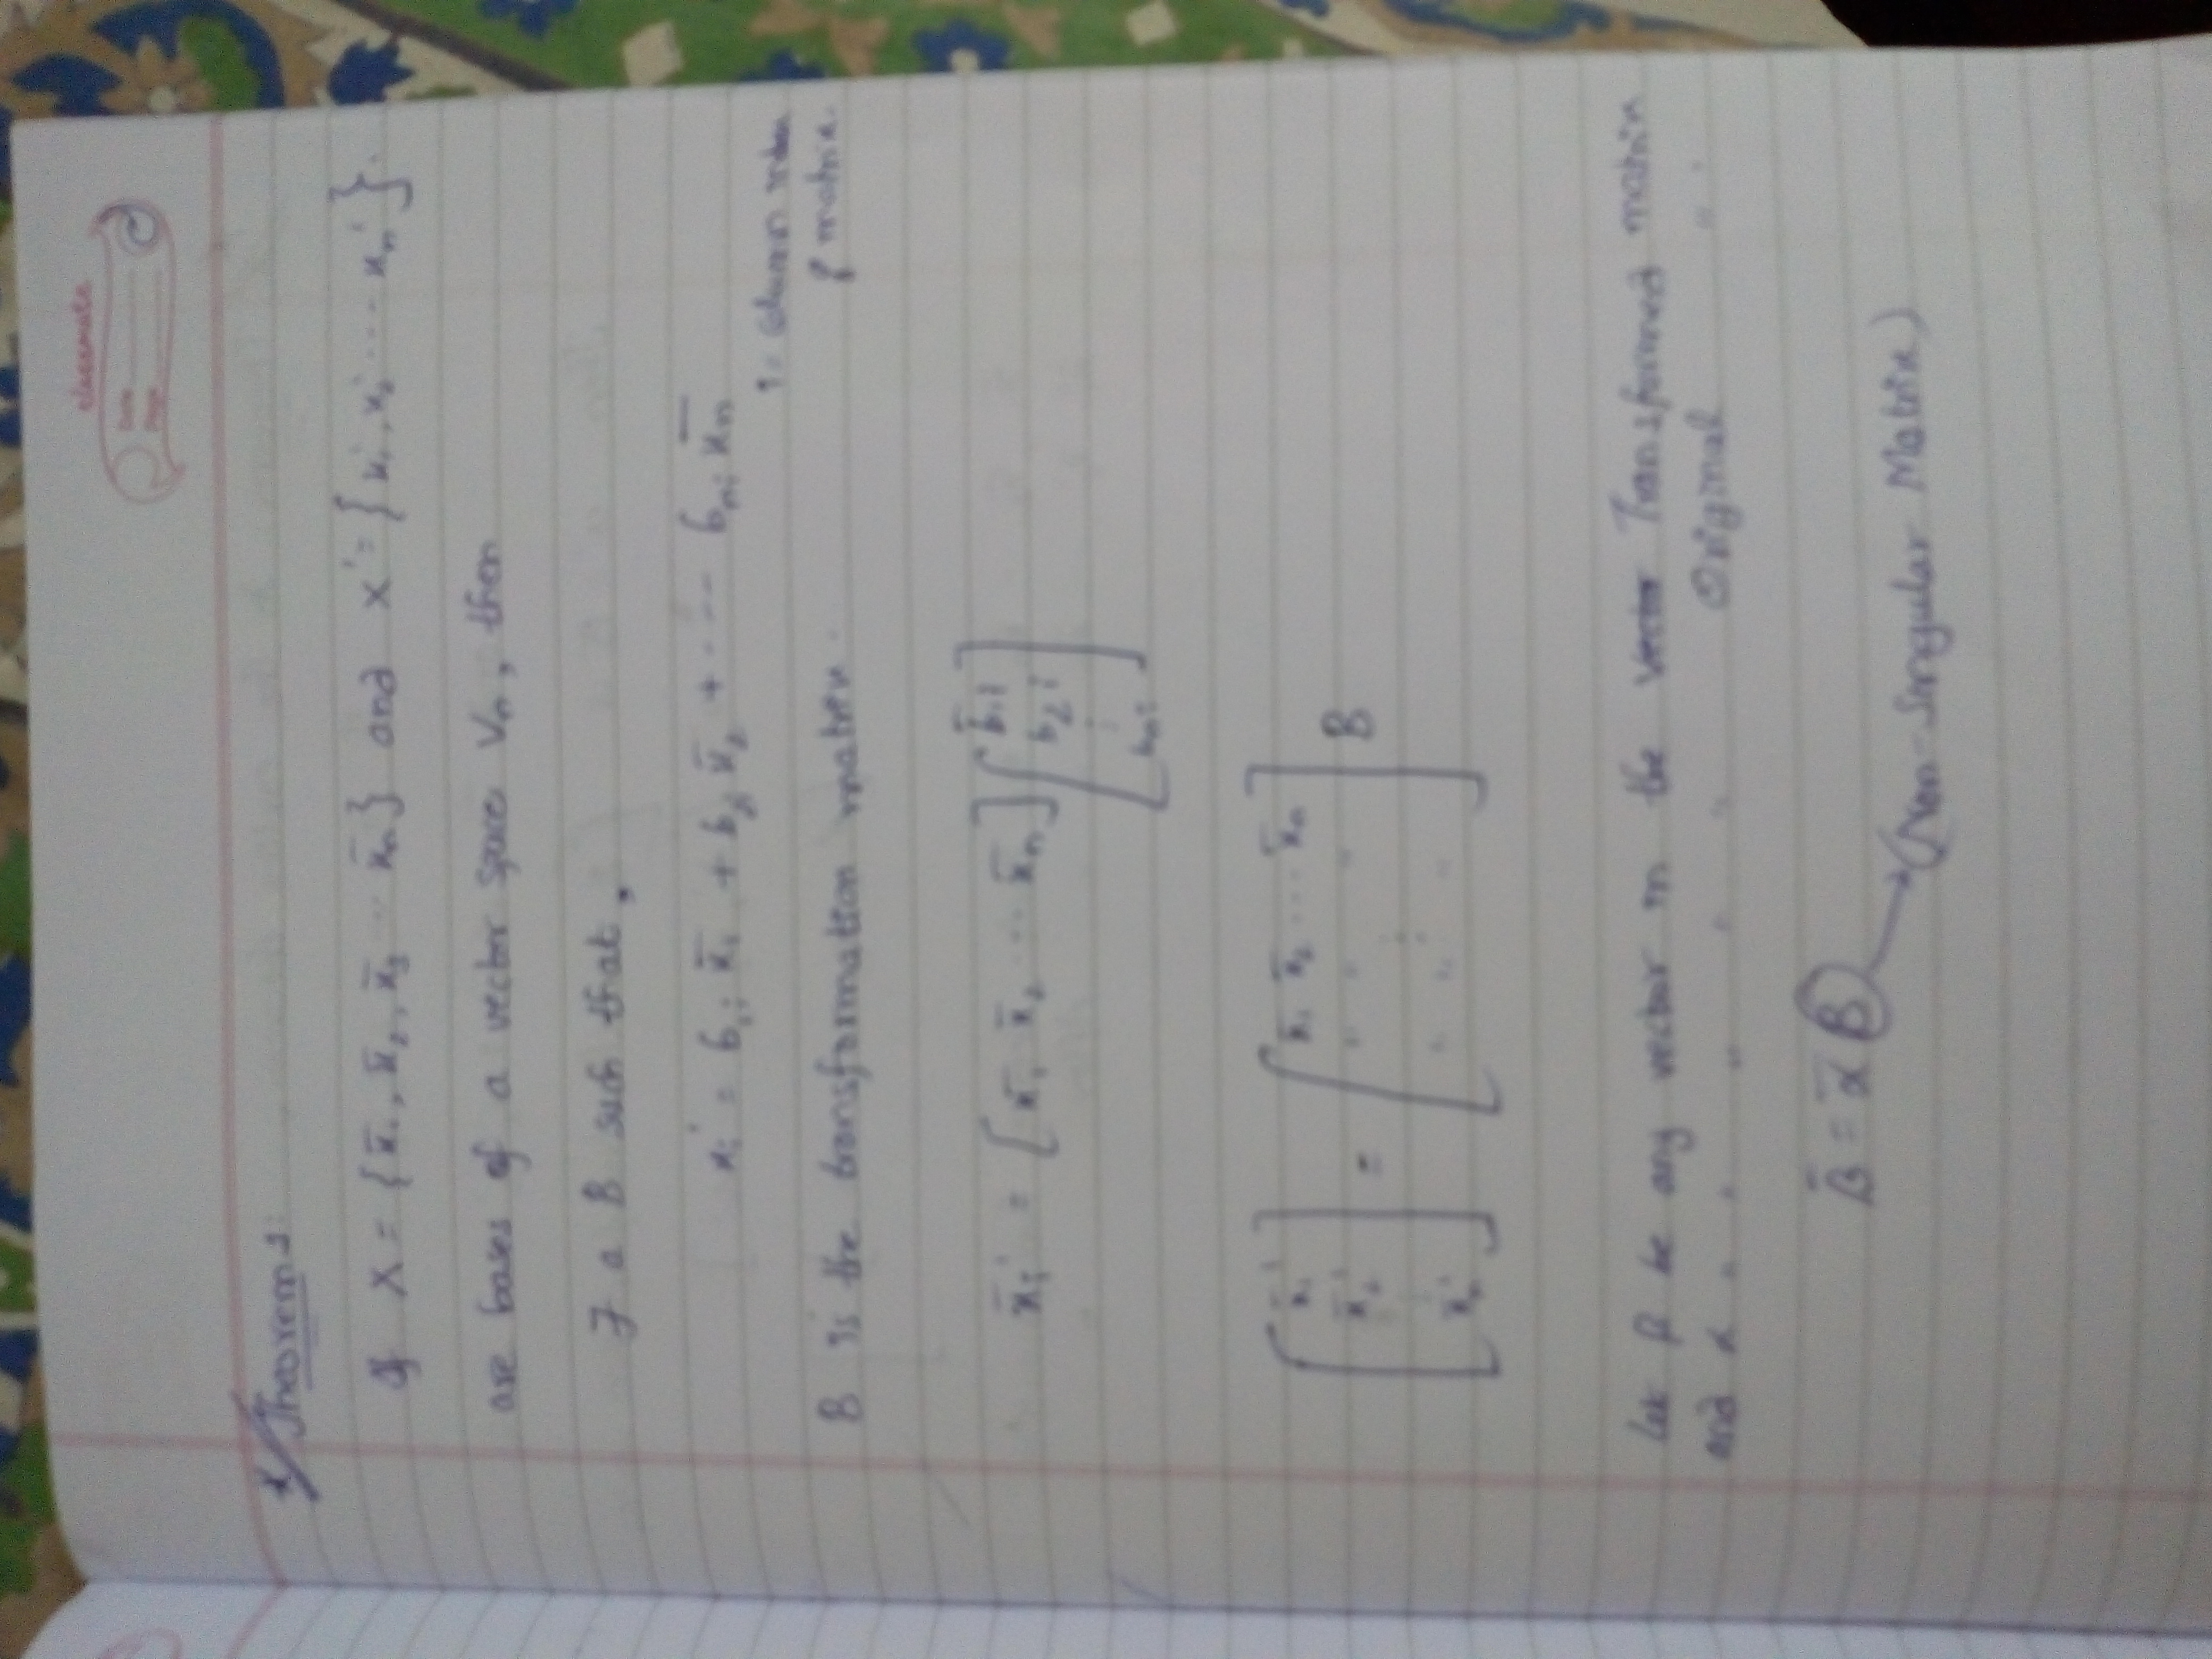 classmate
Date
Page
Theorem:
If X = {x̄₁, x̄₂, x̄₃ ... x̄ₙ} and X' = {x₁', x₂' .... xₙ'}.
are bases of a vector space Vₙ, then
∃ a B such that,
xᵢ' = b₁ᵢ x̄₁ + b₂ᵢ x̄₂ + .... bₙᵢ x̄ₙ
i = column
of matrix.
B is the transformation matrix.
x̄ᵢ' = [x̄₁ x̄₂ ... x̄ₙ] [b₁ᵢ b₂ᵢ ⋮ bₙᵢ]
[x̄₁' x̄₂' x̄ₙ'] = [x̄₁ x̄₂ ... x̄ₙ] B
Let β be any vector in the Transformed matrix
and α " " " " " " Original " .
β̄ = ᾱ B → (Non-Singular Matrix)